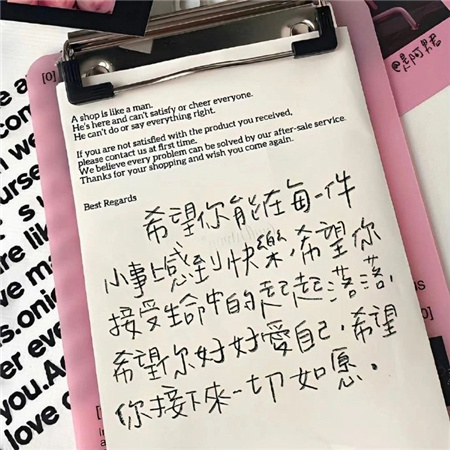 [0]
A shop is like a man.
He's here and can't satisfy or cheer everyone.
He can't do or say everything right.
If you are not satisfied with the product you received,
please contact us at first time.
We believe every problem can be solved by our after-sale service.
Thanks for your shopping and wish you come again.
Best Regards
希望你能在每一件
小事上感到快樂,希望你
接受生命中的起起落落,
希望你好好愛自己,希望
你接下來一切如愿.
urse
re like
er eve
you.Ac
love